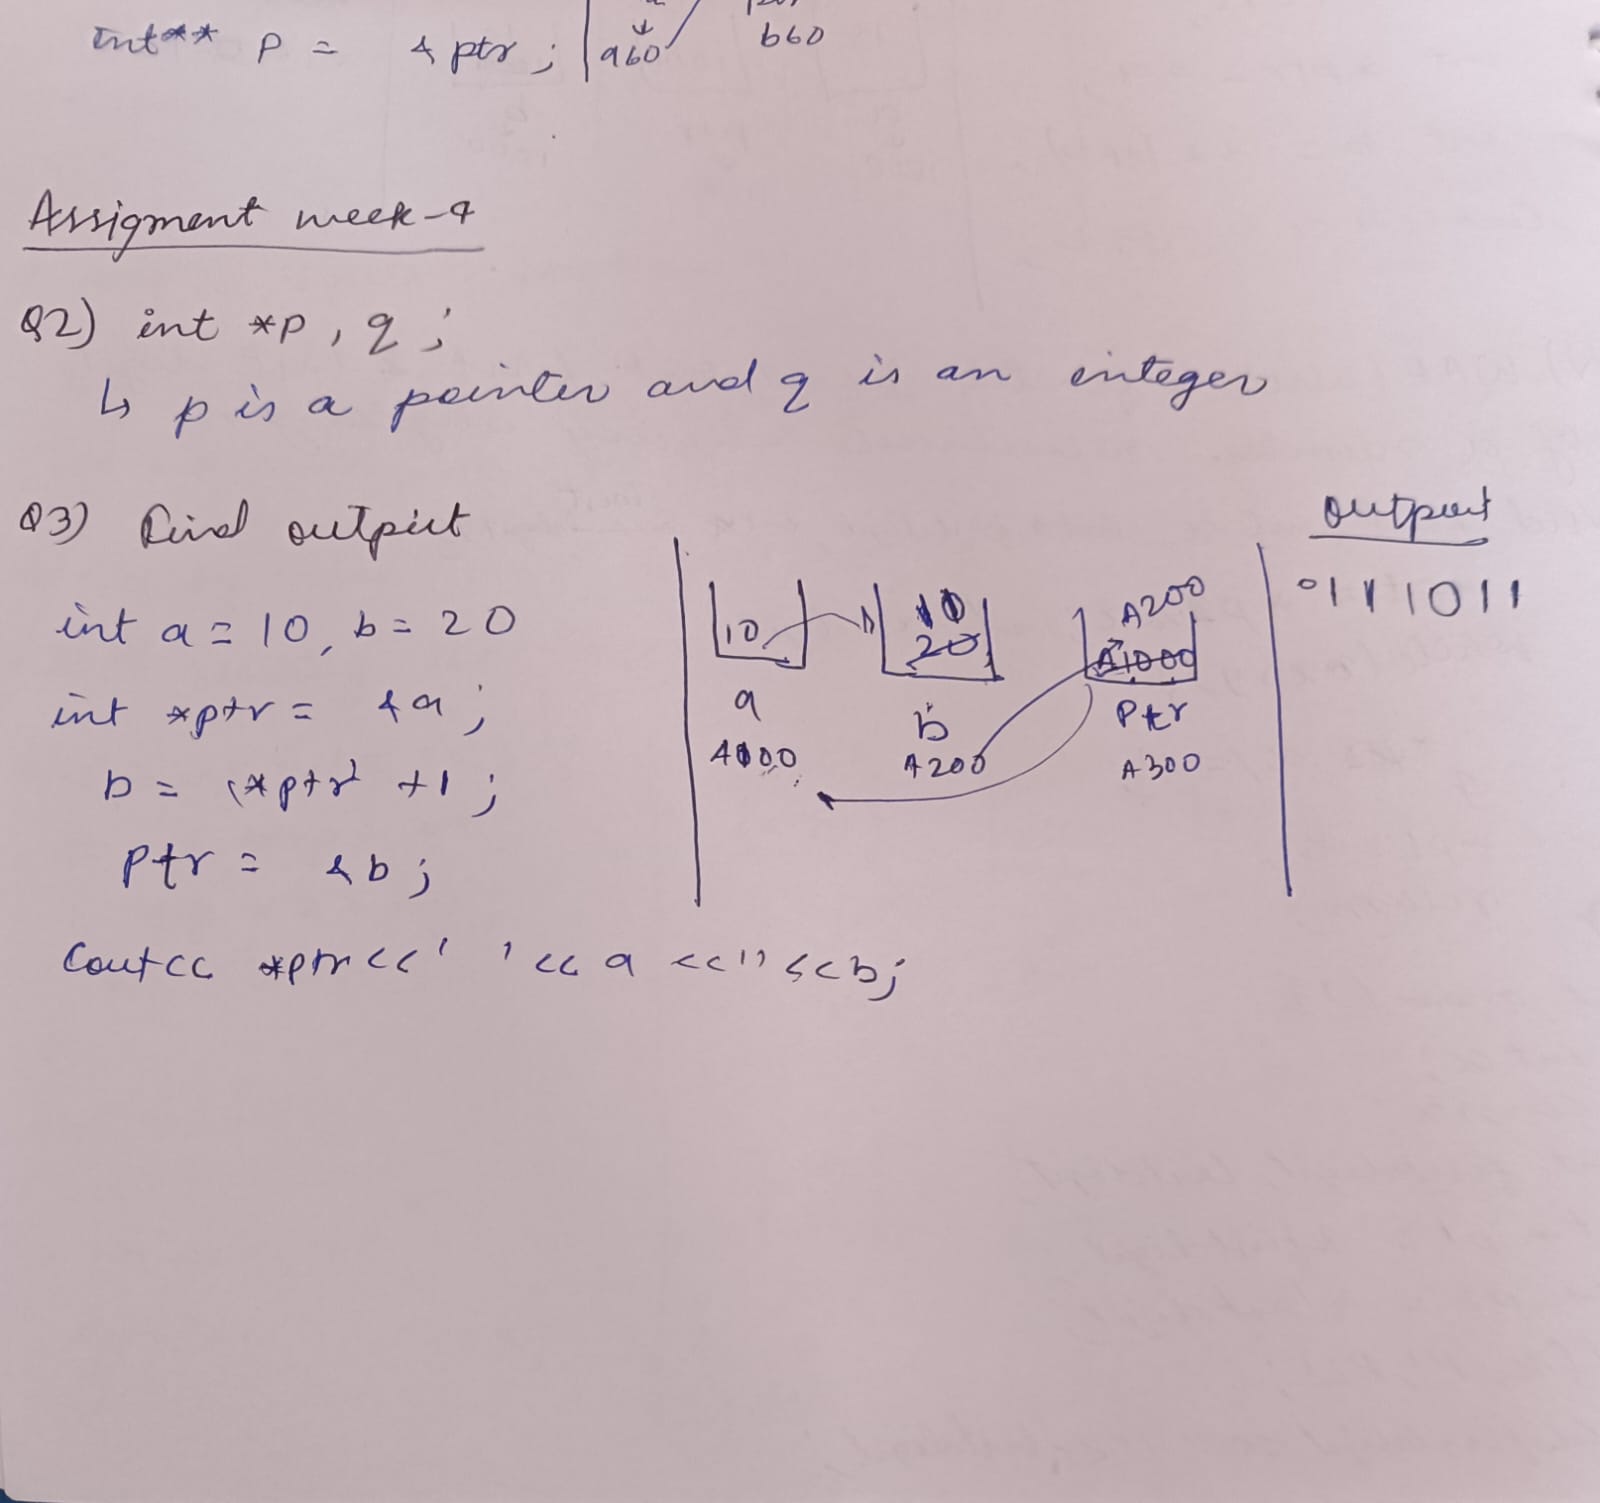 int** p = &ptr; a60 b60
Assigment week-4
Q2) int *p, q;
↳ p is a pointer and q is an integer
Q3) Find output
output
int a = 10, b = 20
int *ptr = &a;
b = *ptr +1;
ptr = &b;
cout<< *ptr <<' '<< a <<" <<b;
10
20
A200
A1000
a
b
ptr
A200
A300
111011